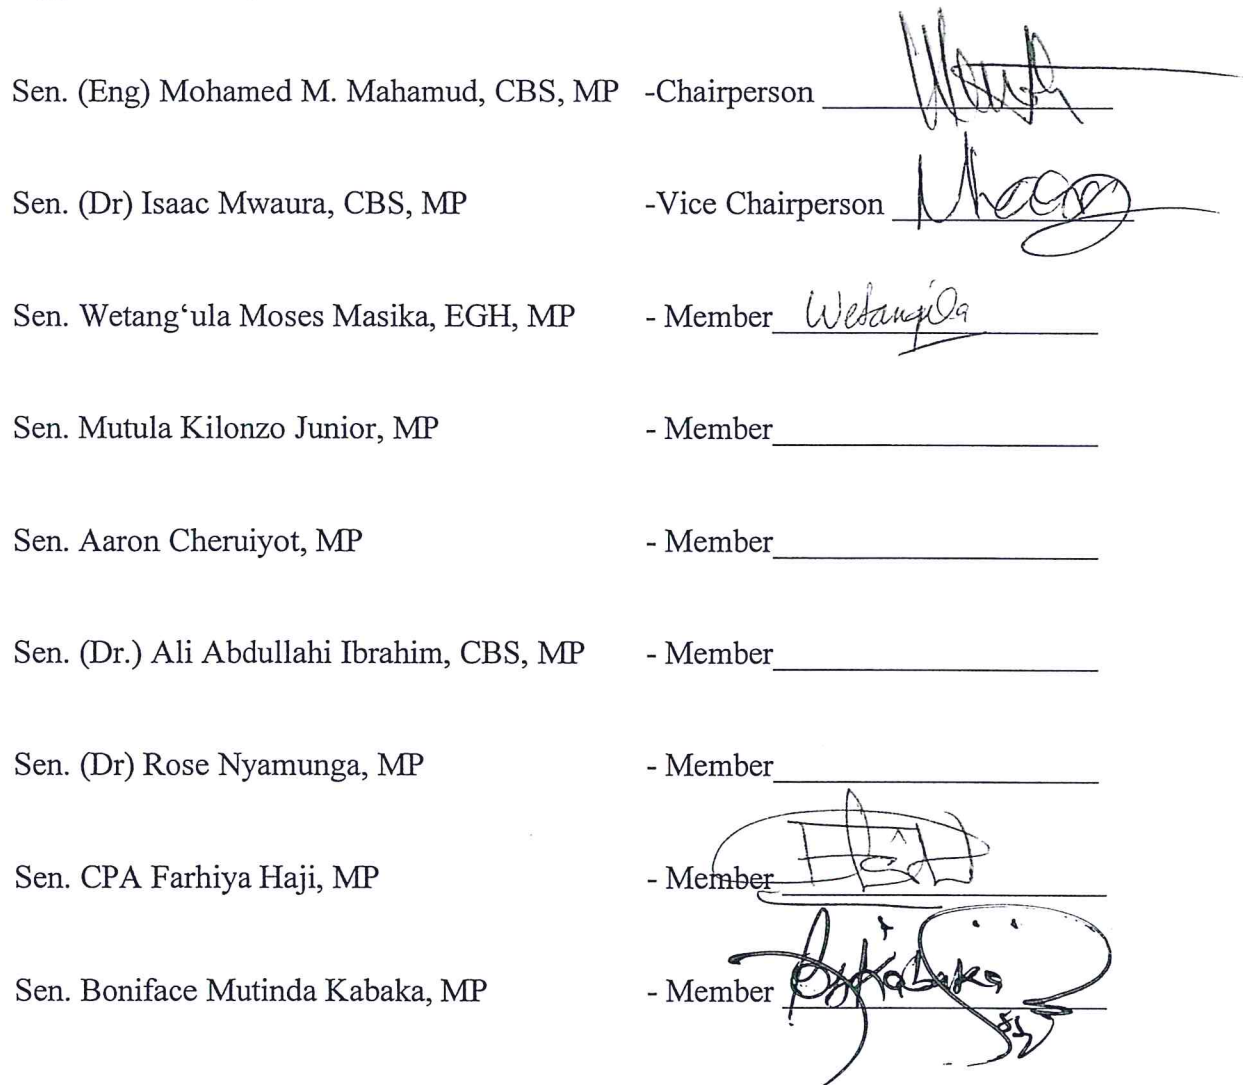 Sen. (Eng) Mohamed M. Mahamud, CBS, MP -Chairperson
Sen. (Dr) Isaac Mwaura, CBS, MP -Vice Chairperson
Sen. Wetang‘ula Moses Masika, EGH, MP - Member Wetangula
Sen. Mutula Kilonzo Junior, MP - Member
Sen. Aaron Cheruiyot, MP - Member
Sen. (Dr.) Ali Abdullahi Ibrahim, CBS, MP - Member
Sen. (Dr) Rose Nyamunga, MP - Member
Sen. CPA Farhiya Haji, MP - Member
Sen. Boniface Mutinda Kabaka, MP - Member